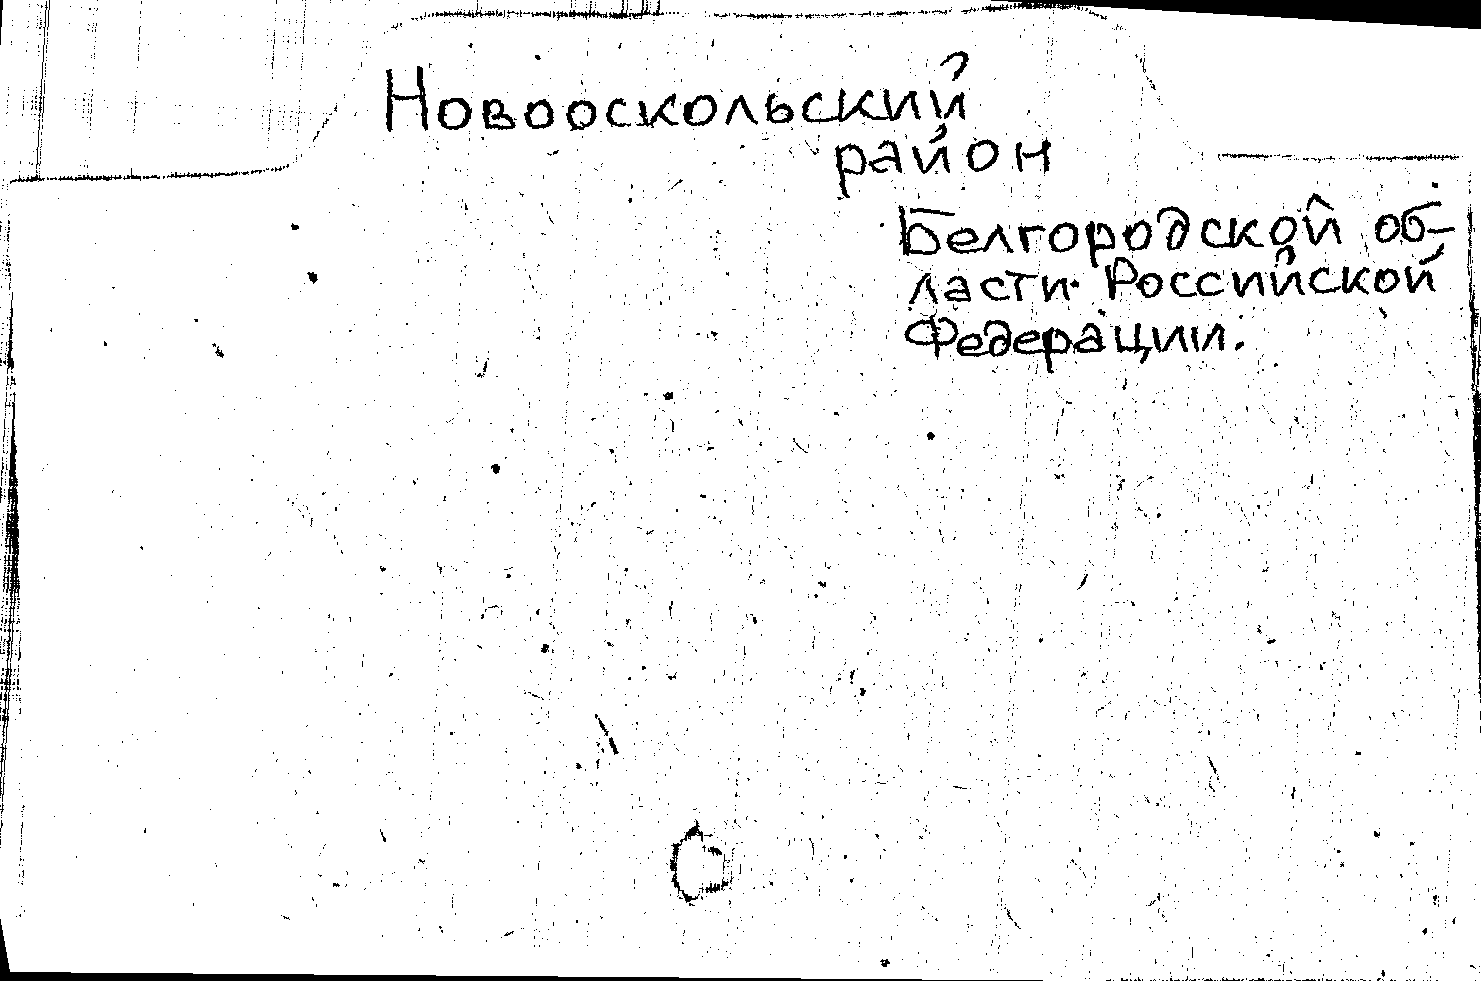 Новооскольский
район
Белгородской об-
ласти Российской
Федерации.